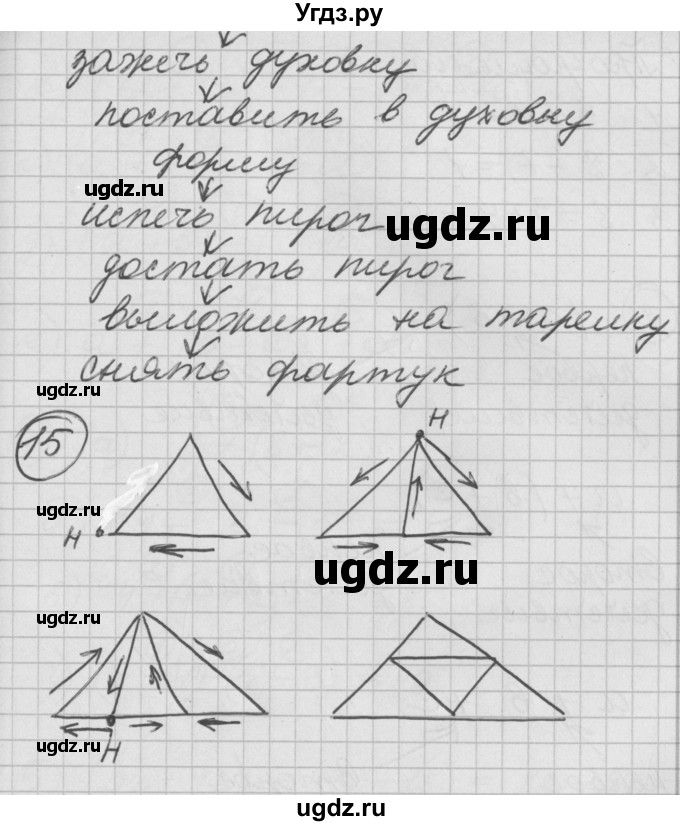 Угдз.ру
зажечь духовку
поставить в духовку
форму
ugdz.ru
испечь пирог
ugdz.ru
достать пирог
выложить на тарелку
снять фартук
ugdz.ru
15
Н
ugdz.ru
ugdz.ru
Н
ugdz.ru
ugdz.ru
Н
ugdz.ru
ugdz.ru